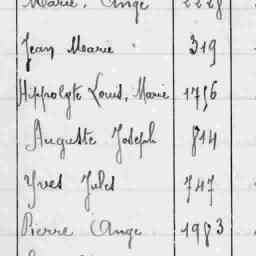 Marie, Ange 2228
Jean Marie 319
Hippolyte Louis, Marie 1756
Auguste Joseph 814
Yves Jules 747
Pierre Ange 1983